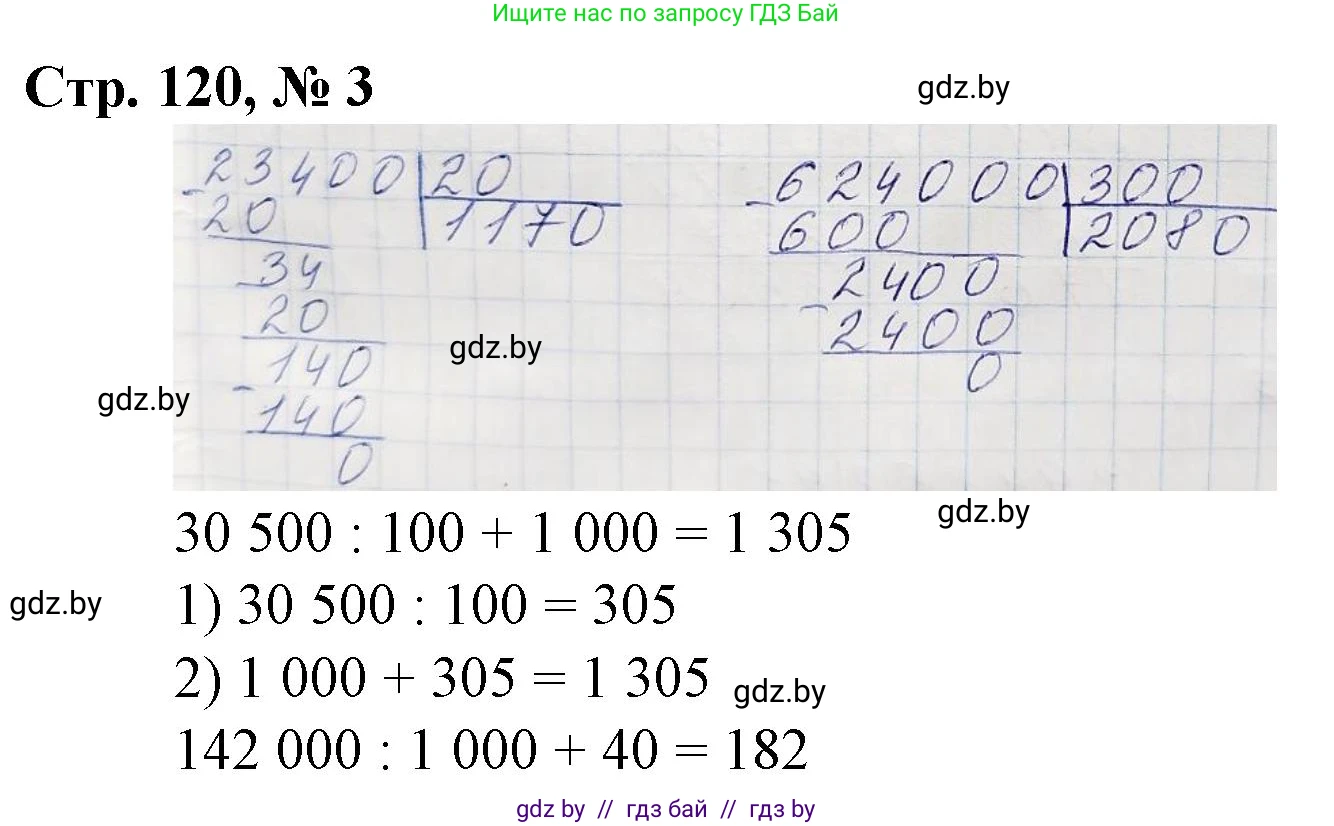 Ищите нас по запросу ГДЗ Бай
Стр. 120, № 3
gdz.by
23400 | 20
- 20 | 1170
- 34
20
- 140
140
0
624000 | 300
- 600 | 2080
2400
- 2400
0
gdz.by
gdz.by
gdz.by
30 500 : 100 + 1 000 = 1 305
gdz.by
1) 30 500 : 100 = 305
2) 1 000 + 305 = 1 305
gdz.by
142 000 : 1 000 + 40 = 182
gdz by // гдз бай // гдз by